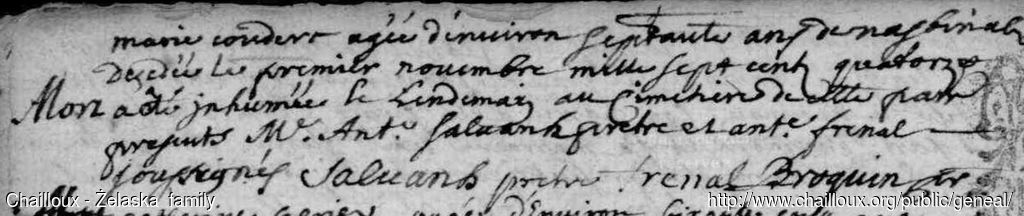 marie couderc agée d'environ septante ans de nasbinals
Decedée le premier novembre mille sept cent quatorze
Mort a été inhumée le Lendemain au Cimetiere de cette parr
presents Mr. Ant.e Salvanh pretre et ant.e frenal
soussignés Salvanh pretre frenal Broquin
agée d'environ
Chailloux - Żelaska family.
http://www.chailloux.org/public/geneal/